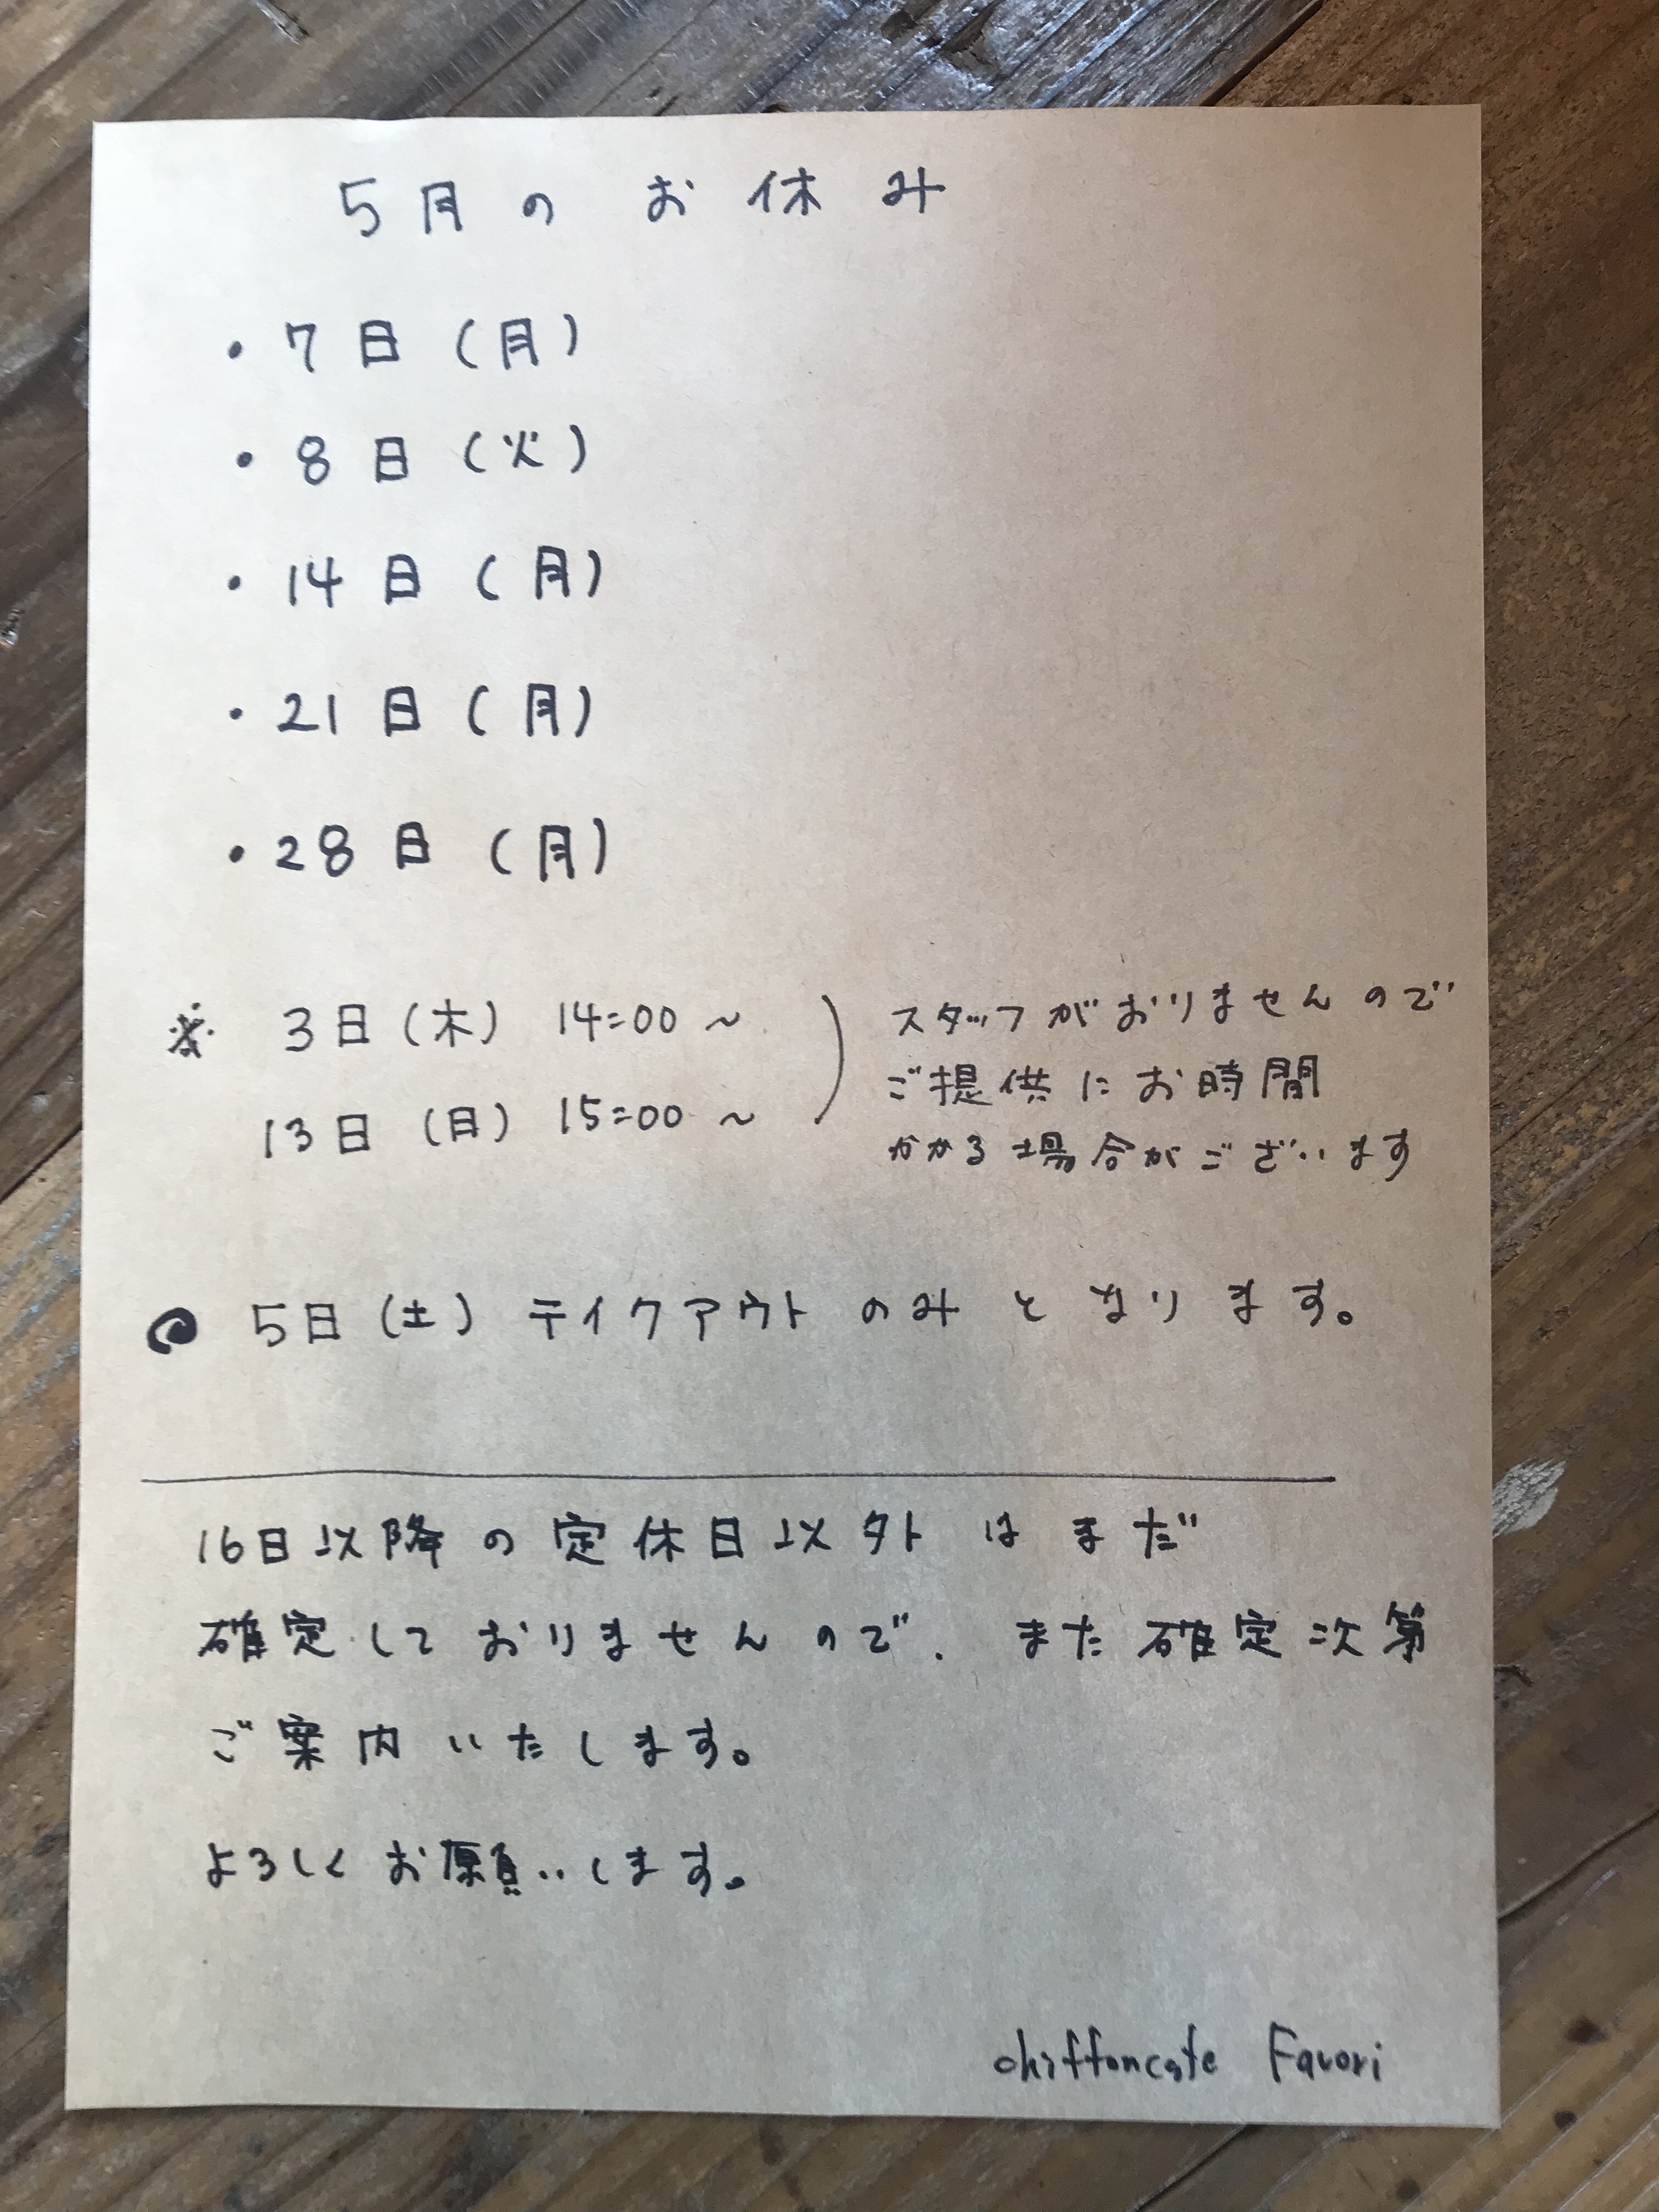 5月のお休み
・7日(月)
・8日(火)
・14日(月)
・21日(月)
・28日(月)
※ 3日(木) 14:00～
13日(日) 15:00～
スタッフがおりませんので
ご提供にお時間
かかる場合がございます
5日(土) テイクアウトのみとなります。
16日以降の定休日以外はまだ
確定しておりませんので、また確定次第
ご案内いたします。
よろしくお願いします。
chiffoncafe Favori